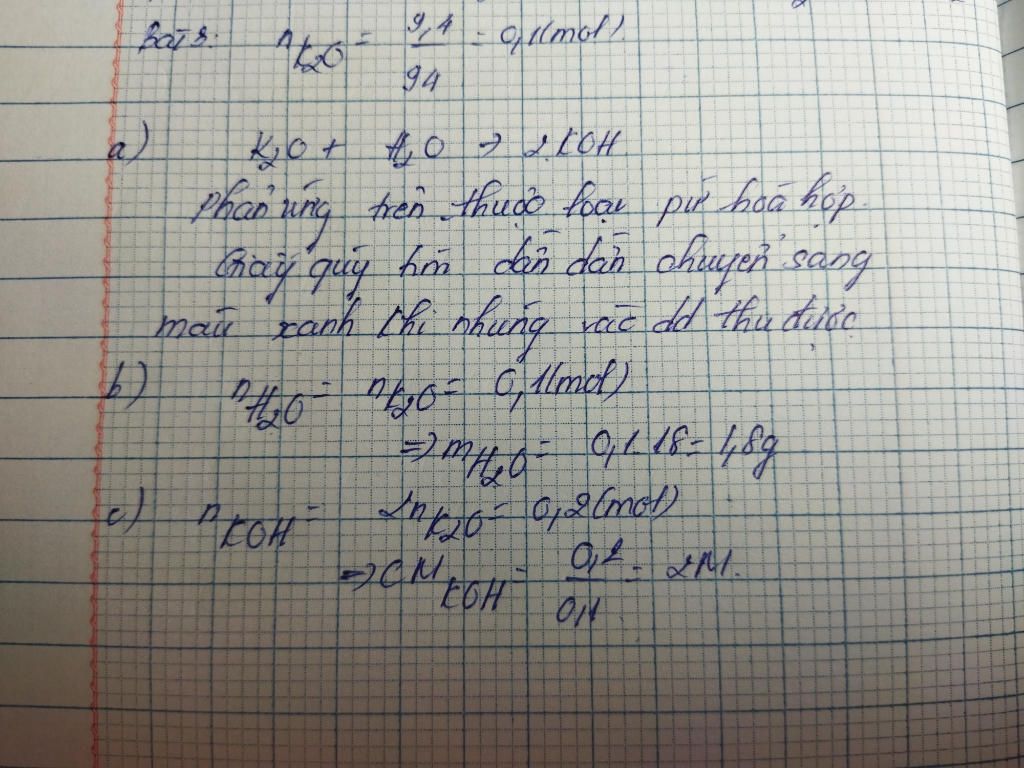 Bài 3: nK2O = 9,4/94 = 0,1(mol)
a) K2O + H2O → 2KOH
phản ứng trên thuộc loại pứ hoá hợp.
Giấy quỳ tím dần dần chuyển sang
màu xanh khi nhúng vào dd thu được
b) nH2O = nK2O = 0,1(mol)
=> mH2O = 0,1.18 = 1,8g
c) nKOH = 2nK2O = 0,2(mol)
=> CM KOH = 0,2/0,1 = 2M.